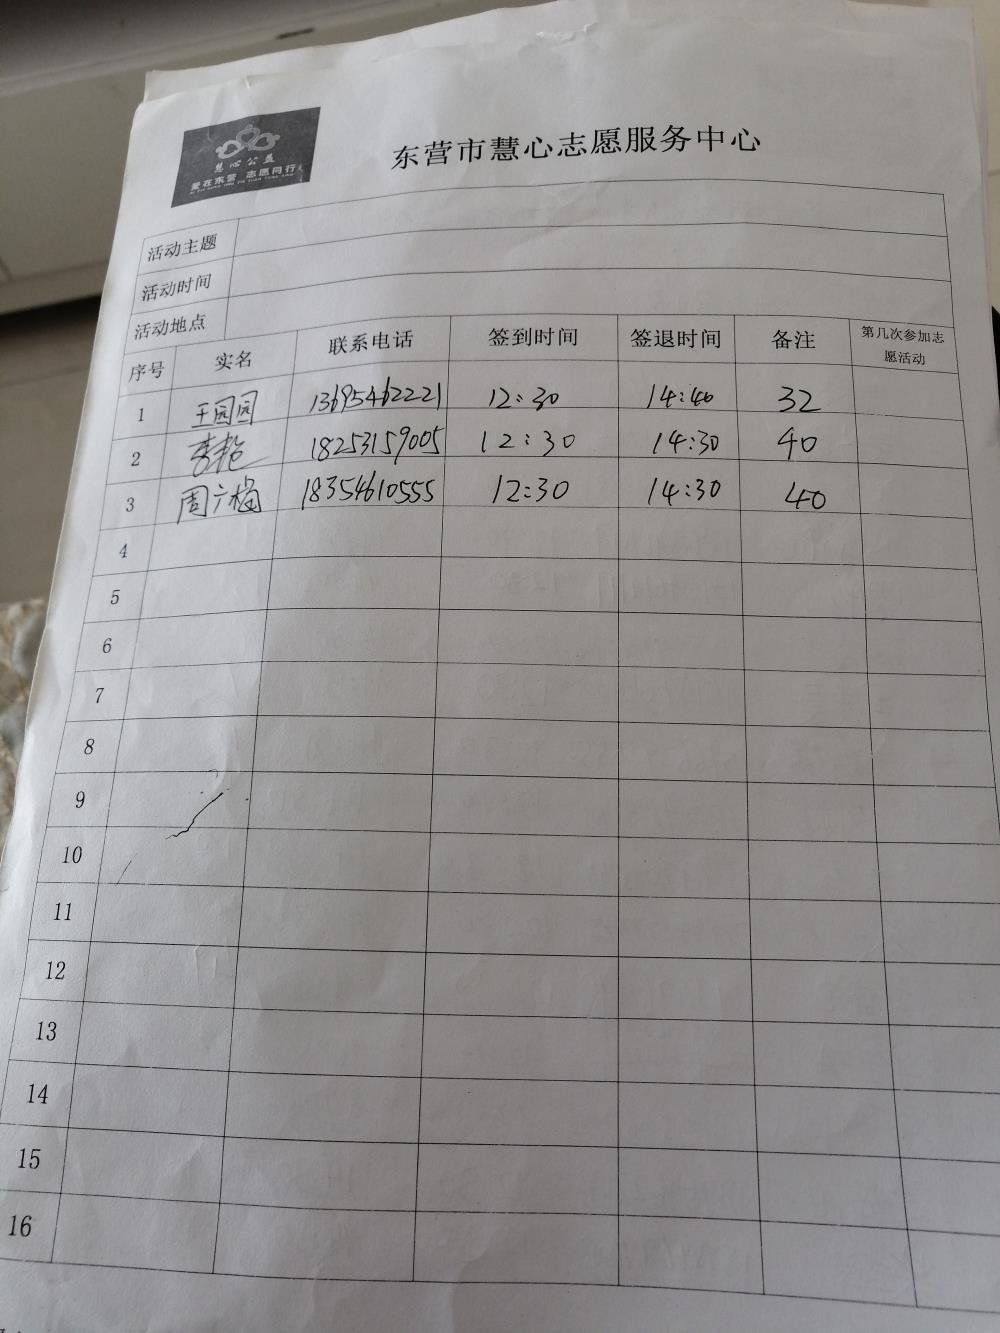 慧心公益
爱在东营 志愿同行
东营市慧心志愿服务中心
活动主题
活动时间
活动地点
序号 实名 联系电话 签到时间 签退时间 备注 第几次参加志愿活动
1 王园园 13695462221 12:30 14:40 32
2 李艳 18253159005 12:30 14:30 40
3 周广梅 18354610555 12:30 14:30 40
4
5
6
7
8
9
10
11
12
13
14
15
16